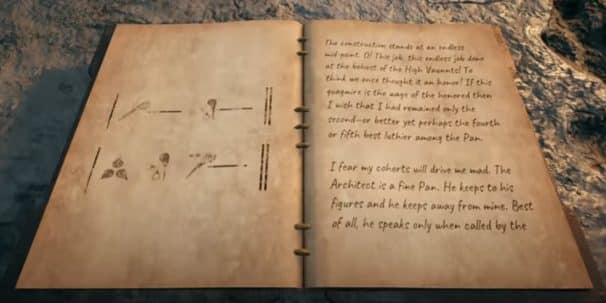 The construction stands at an endless
mid-point. O! This job, this endless job done
at the behest of the High Vaunts! To
think we once thought it an honor! If this
quagmire is the wage of the honored then
I wish that I had remained only the
second-or better yet perhaps the fourth
or fifth best luthier among the Pan.
I fear my cohorts will drive me mad. The
Architect is a fine Pan. He keeps to his
figures and he keeps away from mine. Best
of all, he speaks only when called by the